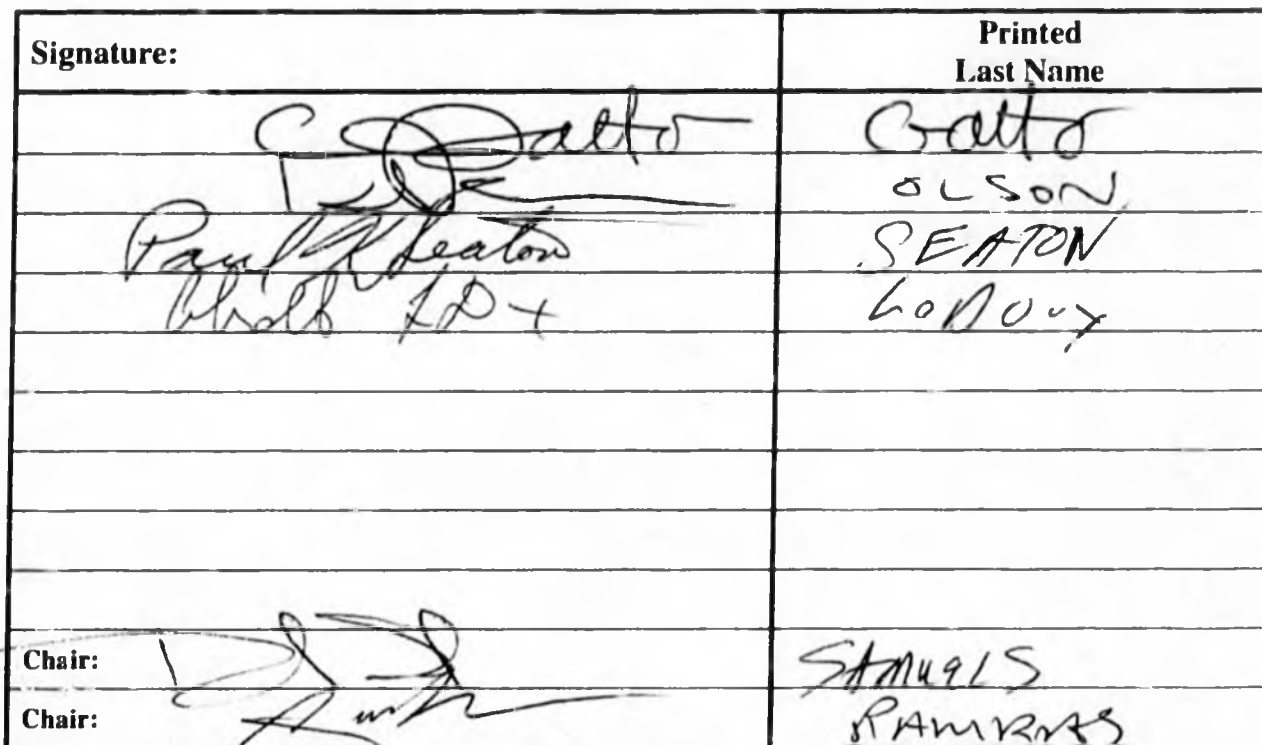 Signature:
Printed
Last Name
Gatto
OLSON
Paul Seaton
SEATON
Chair:
SAMUELS
Chair:
RAMRAS